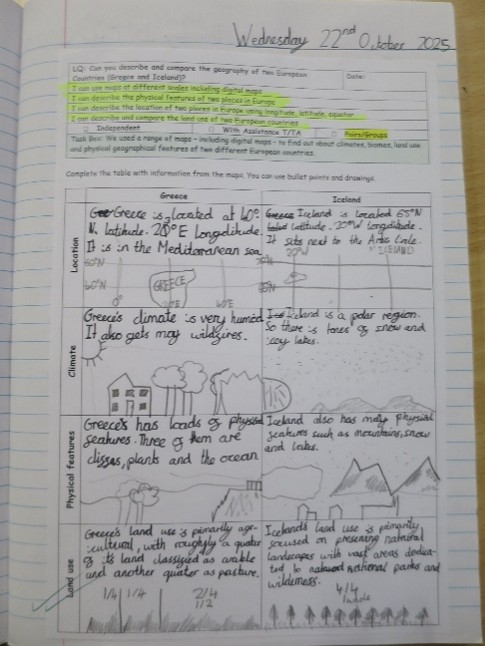 Wednesday 22nd October 2025
LQ: Can you describe and compare the geography of two European
Countries (Greece and Iceland)?
Date:
I can use maps of different scales including digital maps
I can describe the physical features of two places in Europe
I can describe the location of two places in Europe using longitude, latitude, equator
I can describe and compare the land use of two European countries
Independent
With Assistance T/TA
Pairs/Groups
Task Box: We used a range of maps - including digital maps - to find out about climates, biomes, land use
and physical geographical features of two different European countries.
Complete the table with information from the maps. You can use bullet points and drawings.
Greece
Iceland
Location
Greece is located at 40°
N. latitude. 20°E longditude.
It is in the Mediterranean sea.
50°N
40°N
GREECE
0°
20°E
40°E
Iceland is located 65°N
latitude. 20°W longditude.
It sits next to the Artic Circle.
20°W
ICELAND
65°N
Climate
Greece's climate is very humid
It also gets may wildfires.
Iceland is a polar region.
So there is tones of snow and
icy lakes.
Physical features
Greece's has loads of physical
features. Three of them are
cliffs, plants and the ocean
Iceland also has many Physical
features such as mountains, snow
and lakes.
Land use
Greece's land use is primarily agr-
icultural, with roughly a quater
of its land classified as arable
and another quater as pasture.
1/4 1/4 2/4
1/2
Iceland's land use is primarily
focused on preserving natural
landscapes with vast areas dedica-
ted to national parks and
wilderness.
4/4
whole